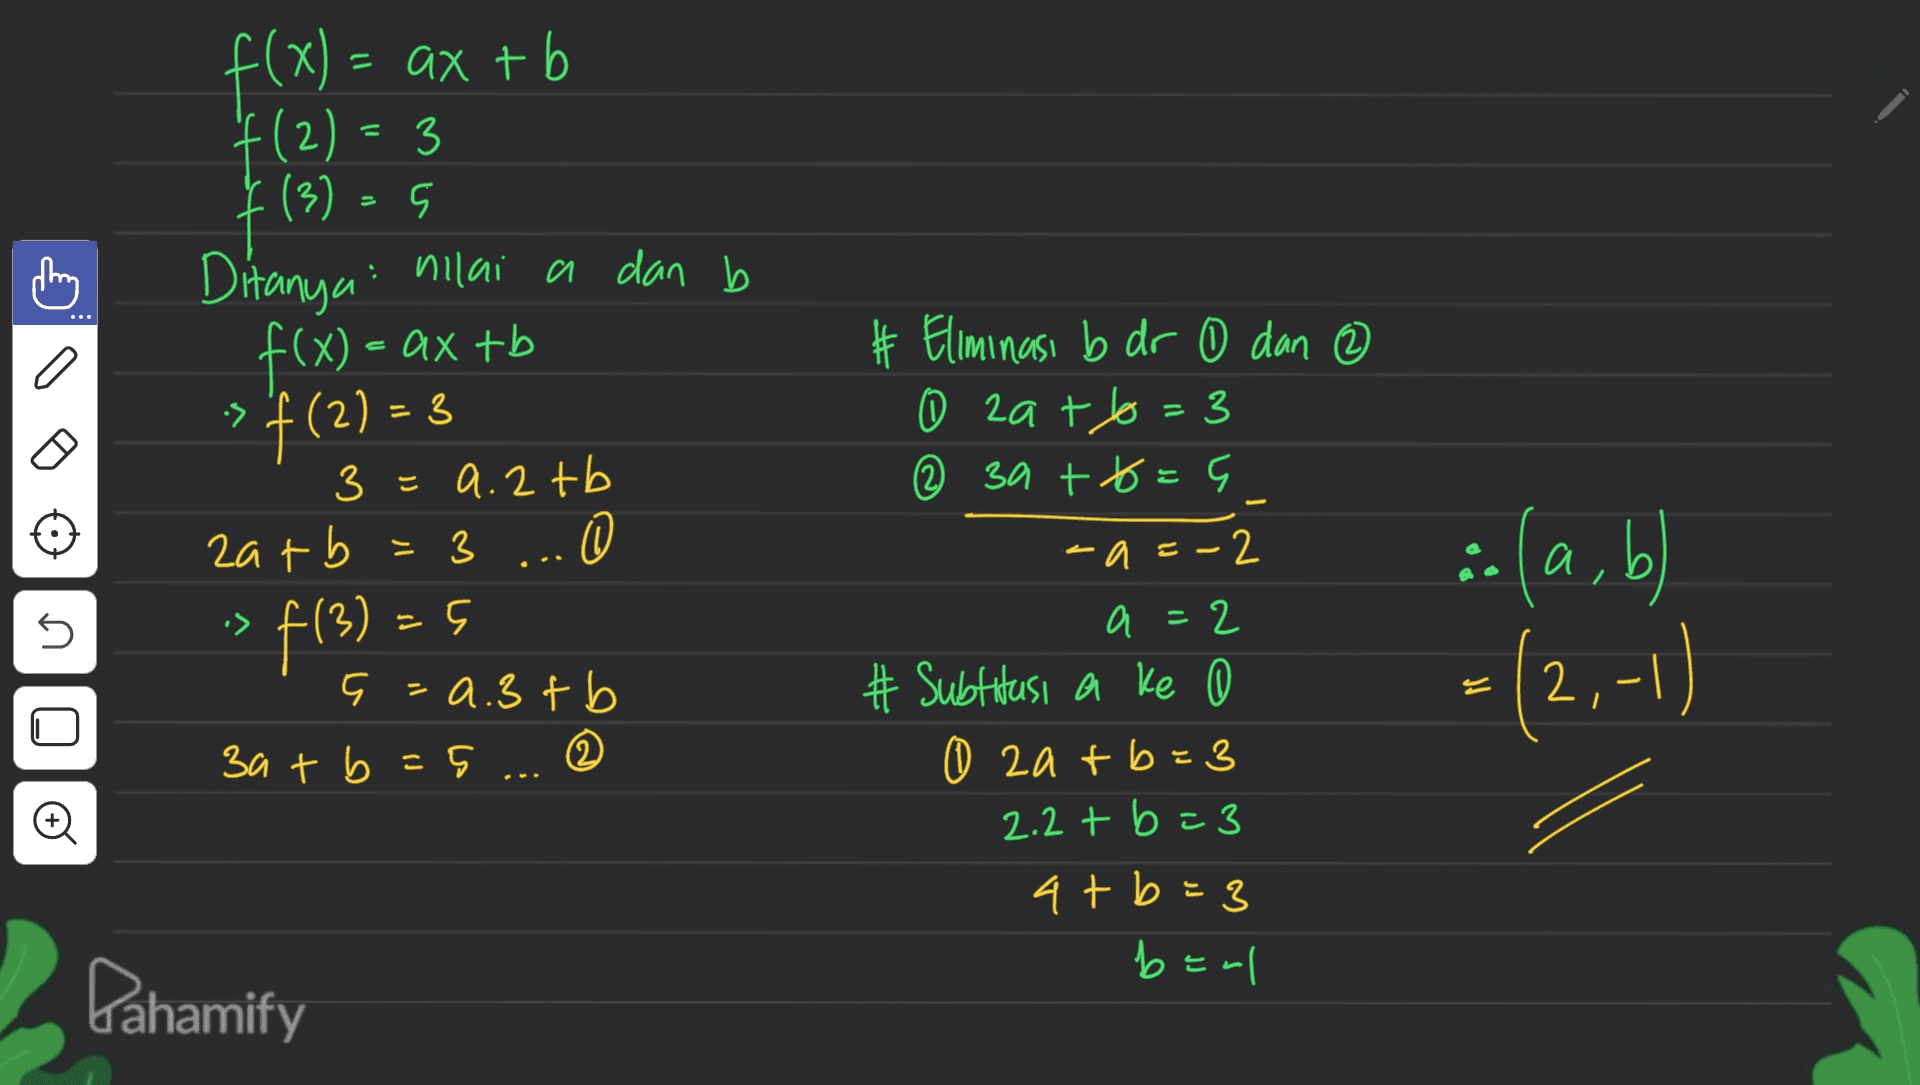 f(x) = ax + b
f(2) = 3
f(3) = 5
Ditanya : nilai a dan b
f(x) = ax + b
•> f(2) = 3
3 = a.2 + b
2a + b = 3 ... ①
•> f(3) = 5
5 = a.3 + b
3a + b = 5 ... ②
# Eliminasi b dr ① dan ②
① 2a + b = 3
② 3a + b = 5 -
-a = -2
a = 2
# Subtitusi a ke ①
① 2a + b = 3
2.2 + b = 3
4 + b = 3
b = -1
∴ (a, b)
= (2, -1)
Pahamify